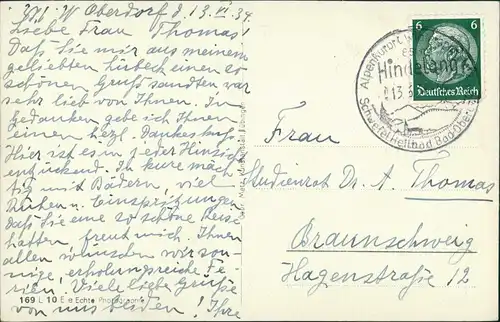 Oberdorf d. 13. VI. 34.
Liebe Frau Thomas!
Daß Sie mir aus meinem
geliebten Lübeck einen so
schönen Gruß sandten, war
sehr lieb von Ihnen. In
Gedanken gebe ich Ihnen
einen herzl. Dankeskuß.
Hier ist es in jeder Hinsicht
entzückend. In kure mäch-
tig mit Bädern, viel
Ruhen u. Einspritzungen.
Daß Sie eine so schöne Reise
hatten, freut mich. Ihnen
allen wünschen wir son-
nige, erholungsreiche Fe-
rien. Viele liebe Grüße
von uns beiden! Ihre
169 L 10 E Echte Photographie
6 6
Deutsches Reich
Alpenkurort
Hindelang
13.
Schwefel-Heilbad Bad Ober
Frau
Studienrat Dr. A. Thomas
Braunschweig
Hagenstraße 12